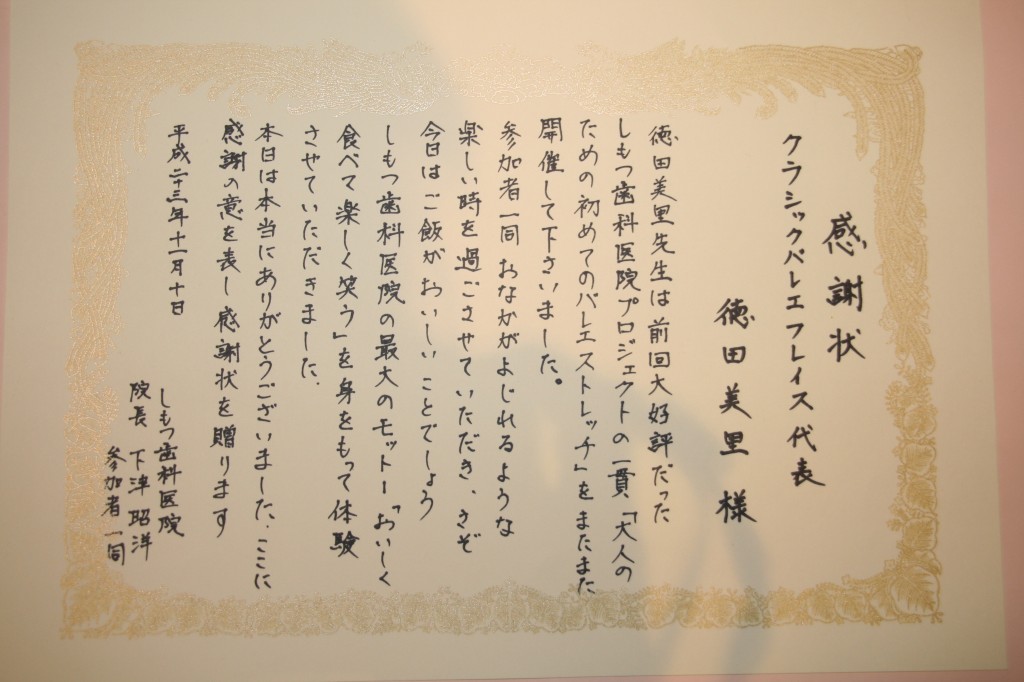 感謝状
クラシックバレエフレイス代表
徳田美里 様
徳田美里先生は前回大好評だった
しもつ歯科医院プロジェクトの一貫、「大人の
ための初めてのバレエストレッチ」をまたまた
開催して下さいました。
参加者一同おなかがよじれるような
楽しい時を過ごさせていただき、さぞ
今日はご飯がおいしいことでしょう
しもつ歯科医院の最大のモットー「おいしく
食べて楽しく笑う」を身をもって体験
させていただきました.
本日は本当にありがとうございました.ここに
感謝の意を表し感謝状を贈ります
平成二十三年十一月十日
しもつ歯科医院
院長 下津昭洋
参加者一同